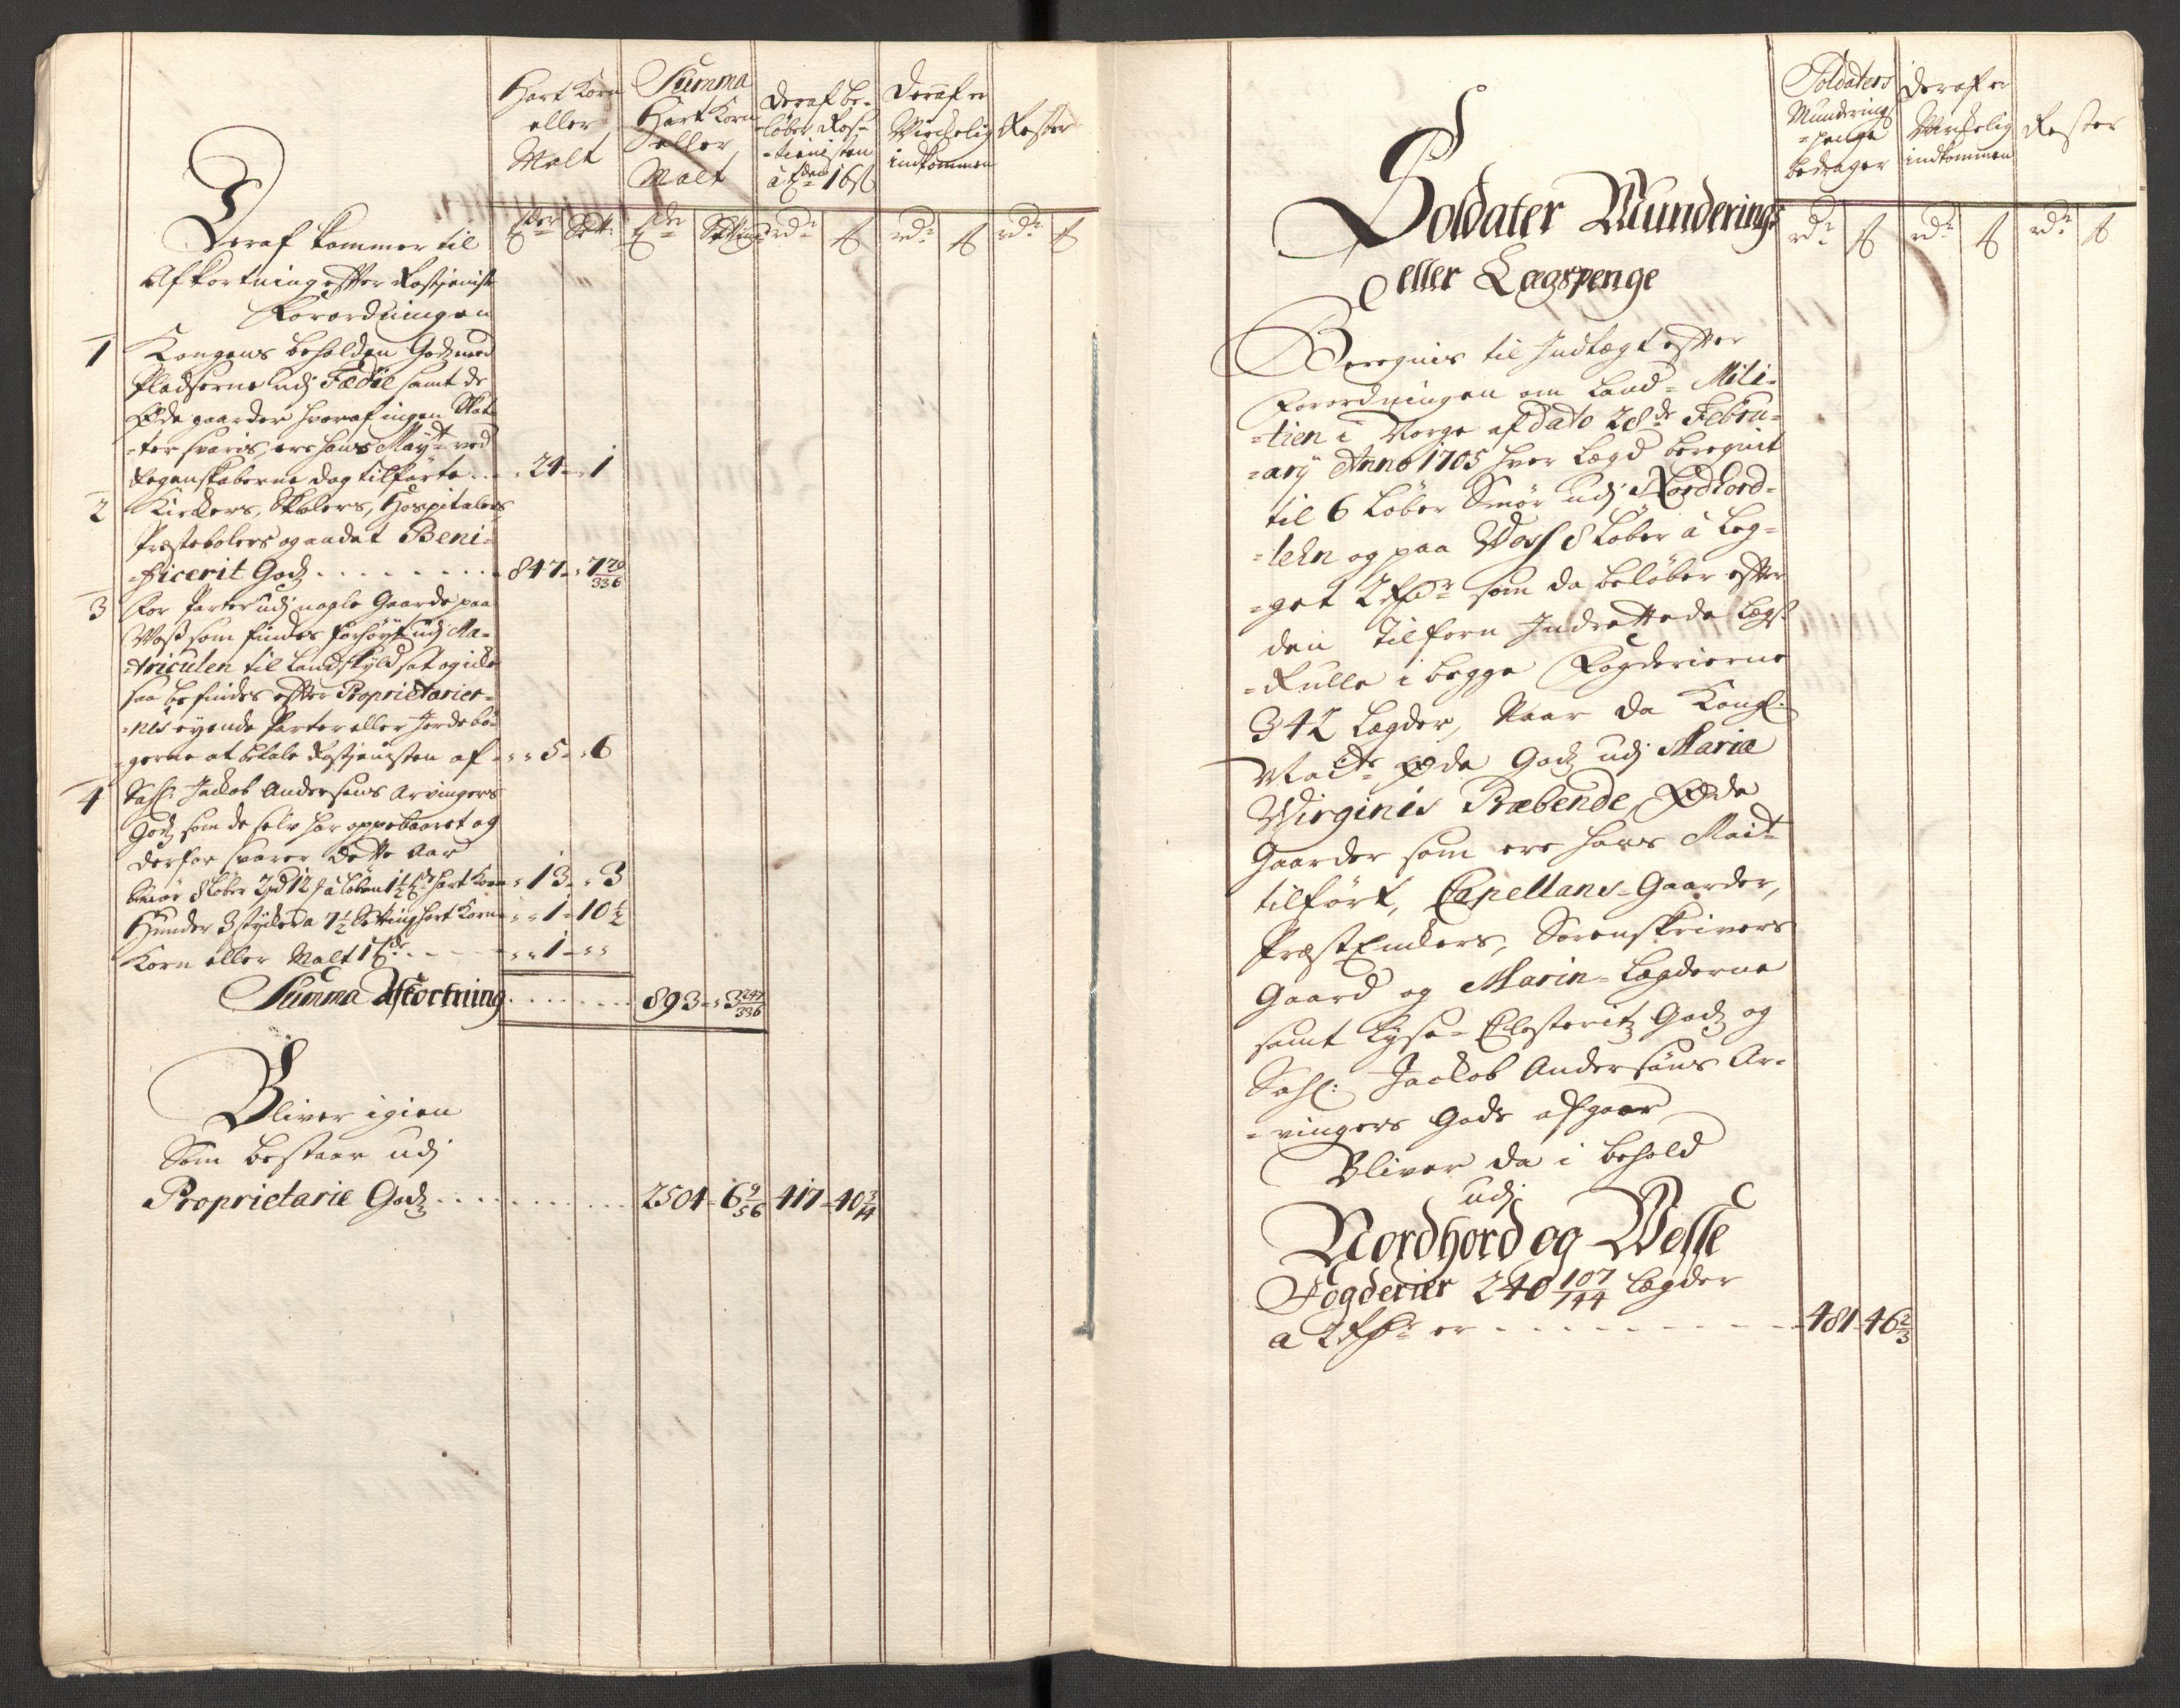 Hart Korn
eller
Malt
Summa
Hart Korn
eller
Malt
Deraf be-
løber Ros-
tienisten
à tdn 16 s
Deraf er
Virkelig
indkommen
Rester
Deraf kommer til
Afkortning efter Rostjeniste
Forordningen
1 Kongens beholden Godz med
Pladserne udj Fædie samt de
Øde gaarder hvoraf ingen Skat-
-ter svaris, ere hans Mayt ved
Regenskaberne dog tilførte . . 24 - 1
2 Kirkers, Skolers, Hospitalers
Præstebolers og andet Beni-
-ficerit Godz . . . . . . . . 847 - 7 70/336
3 For Parter udj nogle Gaarde paa
Woss som findes forhøyt udj Ma-
-triculen til Landskyld sat og icke
saa befindes efter Proprietarier-
-nes eyende Parter eller Jordebø-
gerne at betale Rostjenisten af - 5 - 6
4 Sahl: Jackob Andersøns Arvingers
Godz som de selv har oppebaaret og
derfor svarer dette Aar
Smør 8 Løber 2 pd 12 à Løben 1 1/2 td Hart Korn 13 - 3
Hunder 3 stycker a 7 1/2 Setting hart Korn 1 - 10 1/2
Korn eller Malt 1 td . . . . 1 - "
Summa Afkortning . . . . . . . 893 - 3 247/336
Bliver igien
Som bestaar udj
Proprietarie Godz . . . . . . . 2504 - 6 9/56 417 - 40 3/14
Soldaters
Mundering
-penge
bedrager
Deraf er
Virkelig
indkommen
Rester
Soldater Munderings
eller Lægspenge
Beregnis til Indtægt efter
Forordningen om Land-Mili-
-tien i Norge af dato 28de Febru-
-arij Anno 1705 hver Lægd beregnit
til 6 Løber Smør udj Nordhord-
-lehn og paa Woss 8 Løber à Læg-
-get 2 Rdr som da beløber efter
den tilforn Indrettede Lægs-
-Rulle i begge Fogderierne
342 Lægder, Naar da Kongl:
Maits Øde Godz udj Maria
Wirginis Præbende, Øde
Gaarder som ere hans Mait
tilført, Capellans-Gaarder,
PræstEnkers, Sorenskrivers
Gaard og Marin-Lægderne
samt Lyse-Closteritz Godz og
Sahl: Jackob Andersøns Ar-
-vingers Gods afgaar
Bliver da i behold
udj
Nordhord og Wosse
Fogderier 240 107/144 Lægder
a 2 Rdr er . . . . . . . . . 481 - 46 2/3